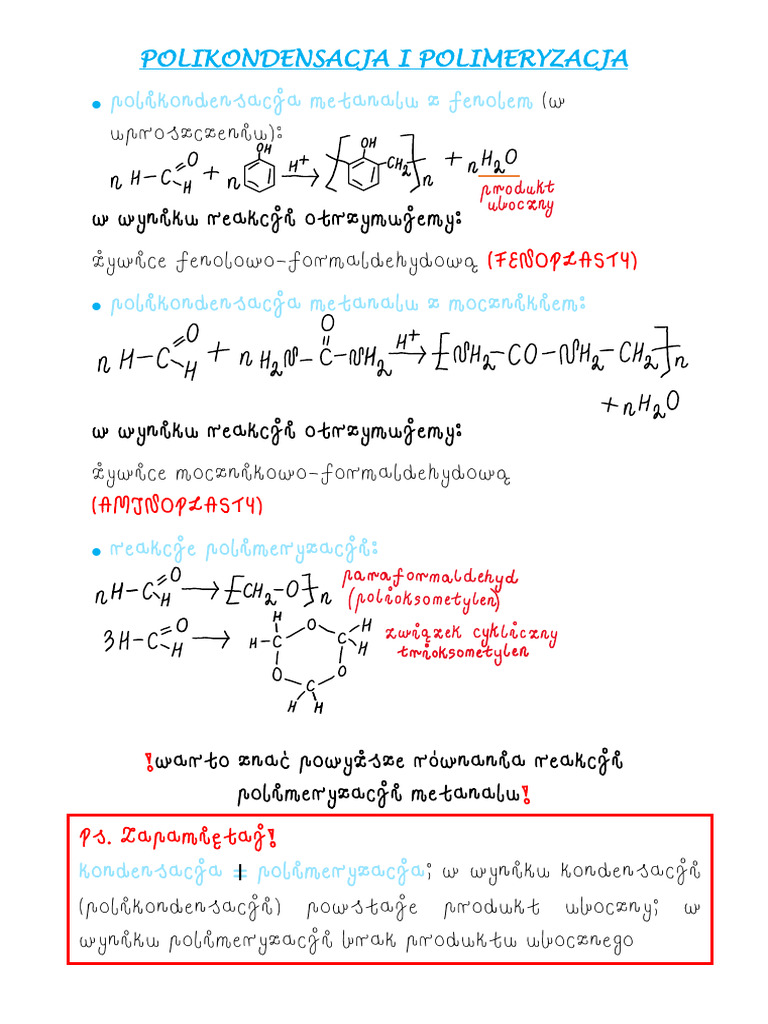 POLIKONDENSACJA I POLIMERYZACJA
• polikondensacja metanalu z fenolem (w
uproszczeniu):
n H–C=O H + n OH H+ → [OH CH2]n + nH2O
produkt
uboczny
w wyniku reakcji otrzymujemy:
żywice fenolowo-formaldehydową (FENOPLASTY)
• polikondensacja metanalu z mocznikiem:
n H–C=O H + n H2N–C(=O)–NH2 H+ → [NH2–CO–NH2–CH2]n
+nH2O
w wyniku reakcji otrzymujemy:
żywice mocznikowo-formaldehydową
(AMINOPLASTY)
• reakcje polimeryzacji:
nH–C=O H → [CH2–O]n paraformaldehyd
(polioksometylen)
3H–C=O H → H H–C O C H H O C O H H związek cykliczny
trioksometylen
!warto znać powyższe równania reakcji
polimeryzacji metanalu!
PS. Zapamiętaj!
kondensacja ≠ polimeryzacja; w wyniku kondensacji
(polikondensacji) powstaje produkt uboczny; w
wyniku polimeryzacji brak produktu ubocznego